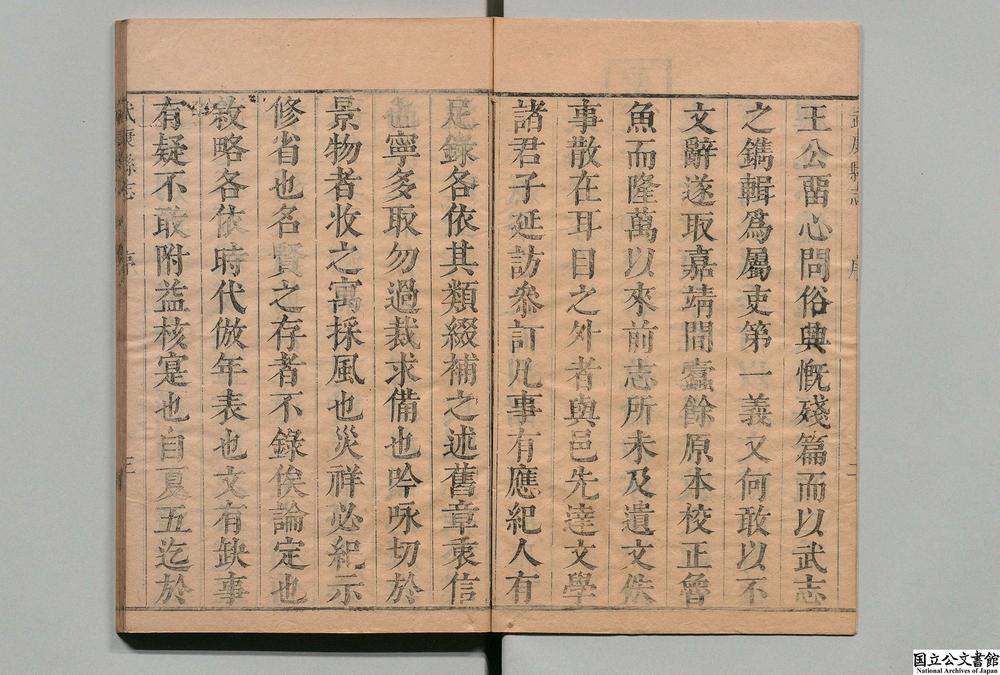 王公畱心問俗典慨殘篇而以武志
之鐫輯爲屬吏第一義又何敢以不
文辭遂取嘉靖間蠹餘原本校正魯
魚而隆萬以來前志所未及遺文佚
事散在耳目之外者與邑先達文學
諸君子延訪參訂凢事有應紀人有
足錄各依其類綴補之述舊章乘信
也寧多取勿過裁求備也吟咏切於
景物者收之寓採風也災祥必紀示
修省也名賢之存者不錄俟論定也
敘略各依時代倣年表也文有缺事
有疑不敢附益核寔也自夏五迄於
武康縣志 序 三
国立公文書館
National Archives of Japan